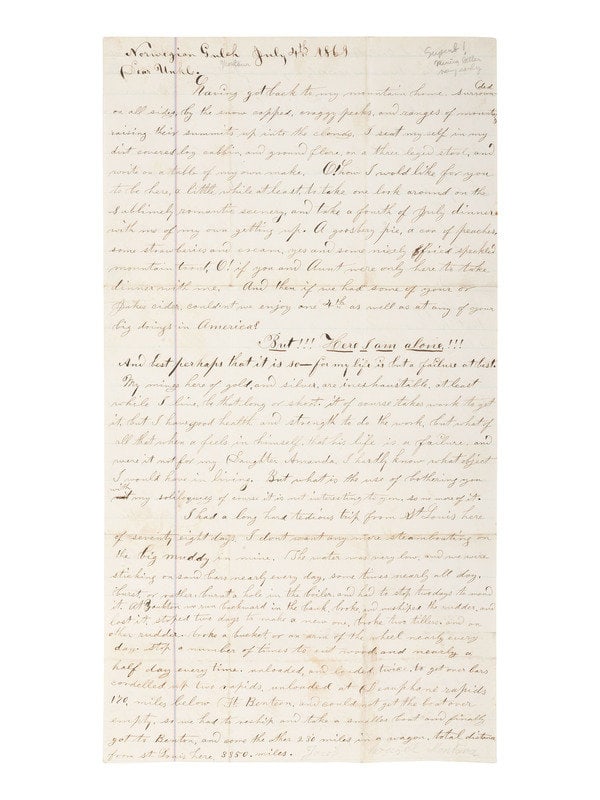 Norwegian Gulch July 4th 1869
Dear Unkl.
Having got back to my mountain home surroun ded
on all sides, by the snow capped, craggy peaks, and ranges of mountains
raising their summits up into the clouds, I seat my self in my
dirt covered log cabbin, and ground flore, on a three leged stool, and
write on a table of my own make. O! how I would like for you
to be here, a little while at least, to take one look around on the
sublimely romantic scenery, and take a fourth of July dinner
with me of my own getting up. A goosbery pie, a can of peaches
some strawberies and cream, yes and some nicely fried speckled
mountain trout, O! if you and Aunt were only here to take
dinner with me. And then if we had some of your or
cider, couldnt we enjoy one 4th as well as at any of your
big doings in America?
But!!! Here I am alone!!!
And best perhaps that it is so — for my life is but a failure at best.
My mines here of gold, and silver, are inexhaustable, at least
while I live, be that long or short. it of course takes work to get
it, but I have good health and strength to do the work, but what of
all that when a feels in himself, that his life is a failure, and
were it not for my Daughter Amanda, I hardly know what object
I would have in living. But what is the use of bothering you
with my soliloquies of course it is not interesting to you, so no more of it.
I had a long hard tedious trip from St Louis here
of seventy eight days I dont want any more steamboating on
the big muddy in mine. The water was very low, and we were
sticking on sand bars nearly every day, some times nearly all day.
burst, or rather burnt a hole in the boiler and had to stop two days to mend
it. we run backward in the bank, broke, and unshiped the rudder, and
lost it, stopt two days to make a new one, broke two tillers, and an
other rudder. broke a bucket or an arm of the wheel nearly every
day. stop a number of times to cut wood and nearly a
half day every time. unloaded, and loaded twice, to get over bars
cordelled up two rapids, unloaded at Dauphine rapids
miles below Ft Benton, and could not get the boat over
empty, so we had to reship and take a smaller boat and finally
got to Benton, and come the other miles in a wagon. total distance
from St Louis here, 3350. miles.